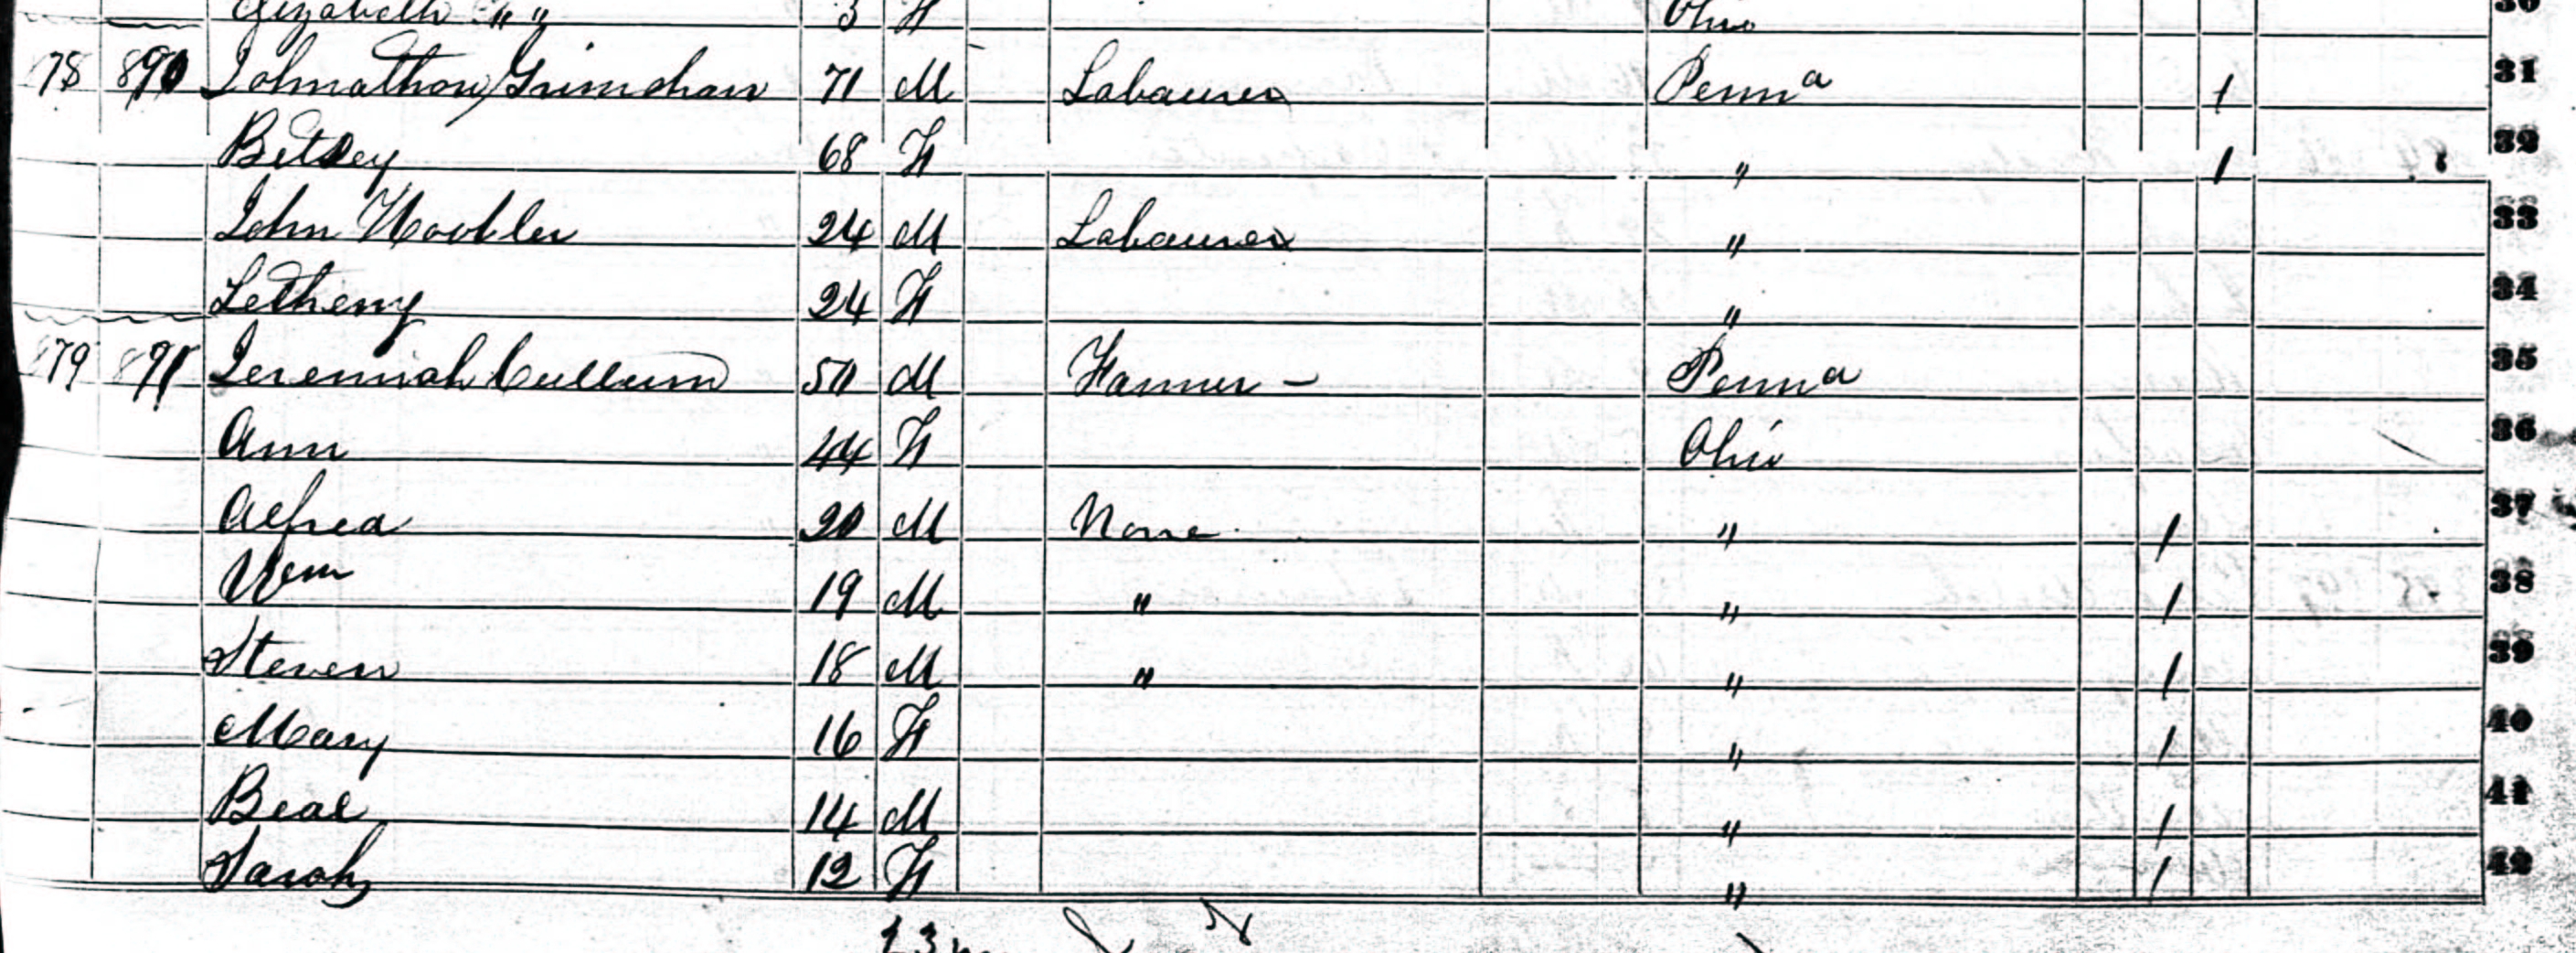 Elizabeth " " 3 F Ohio 30
78 890 Johnathon Grimshaw 71 M Labaurer Penna 1 31
Betsey 68 F " 1 32
John Hoobler 24 M Labaurer " 33
Letheny 24 F " 34
879 891 Jeremiah Cullum 50 M Farmer - Penna 35
Ann 44 F Ohio 36
Alfred 20 M None " 1 37
Wm 19 M " " 1 38
Steven 18 M " " 1 39
Mary 16 F " 1 40
Beal 14 M " 1 41
Sarah 12 F " 1 42